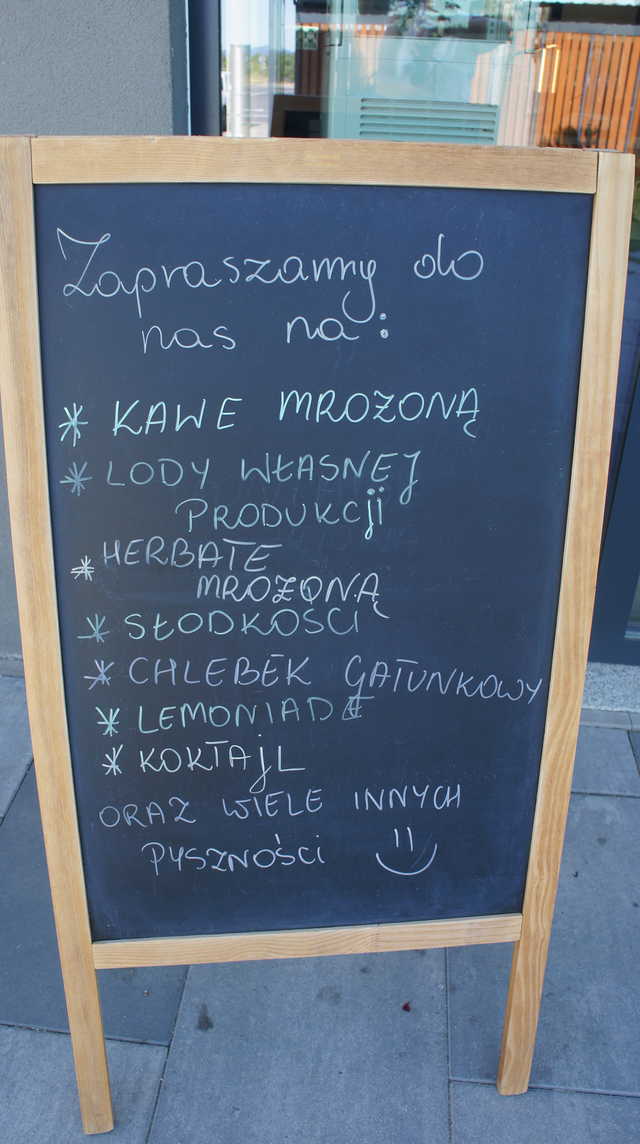 Zapraszamy do
nas na:
* KAWE MROŻONĄ
* LODY WŁASNEJ
PRODUKCji
* HERBATE
MROŻONĄ
* SŁODKOŚCI
* CHLEBEK GATUNKOWY
* LEMONIADE
* KOKTAjL
ORAZ WIELE INNYCH
PYSZNOŚCI